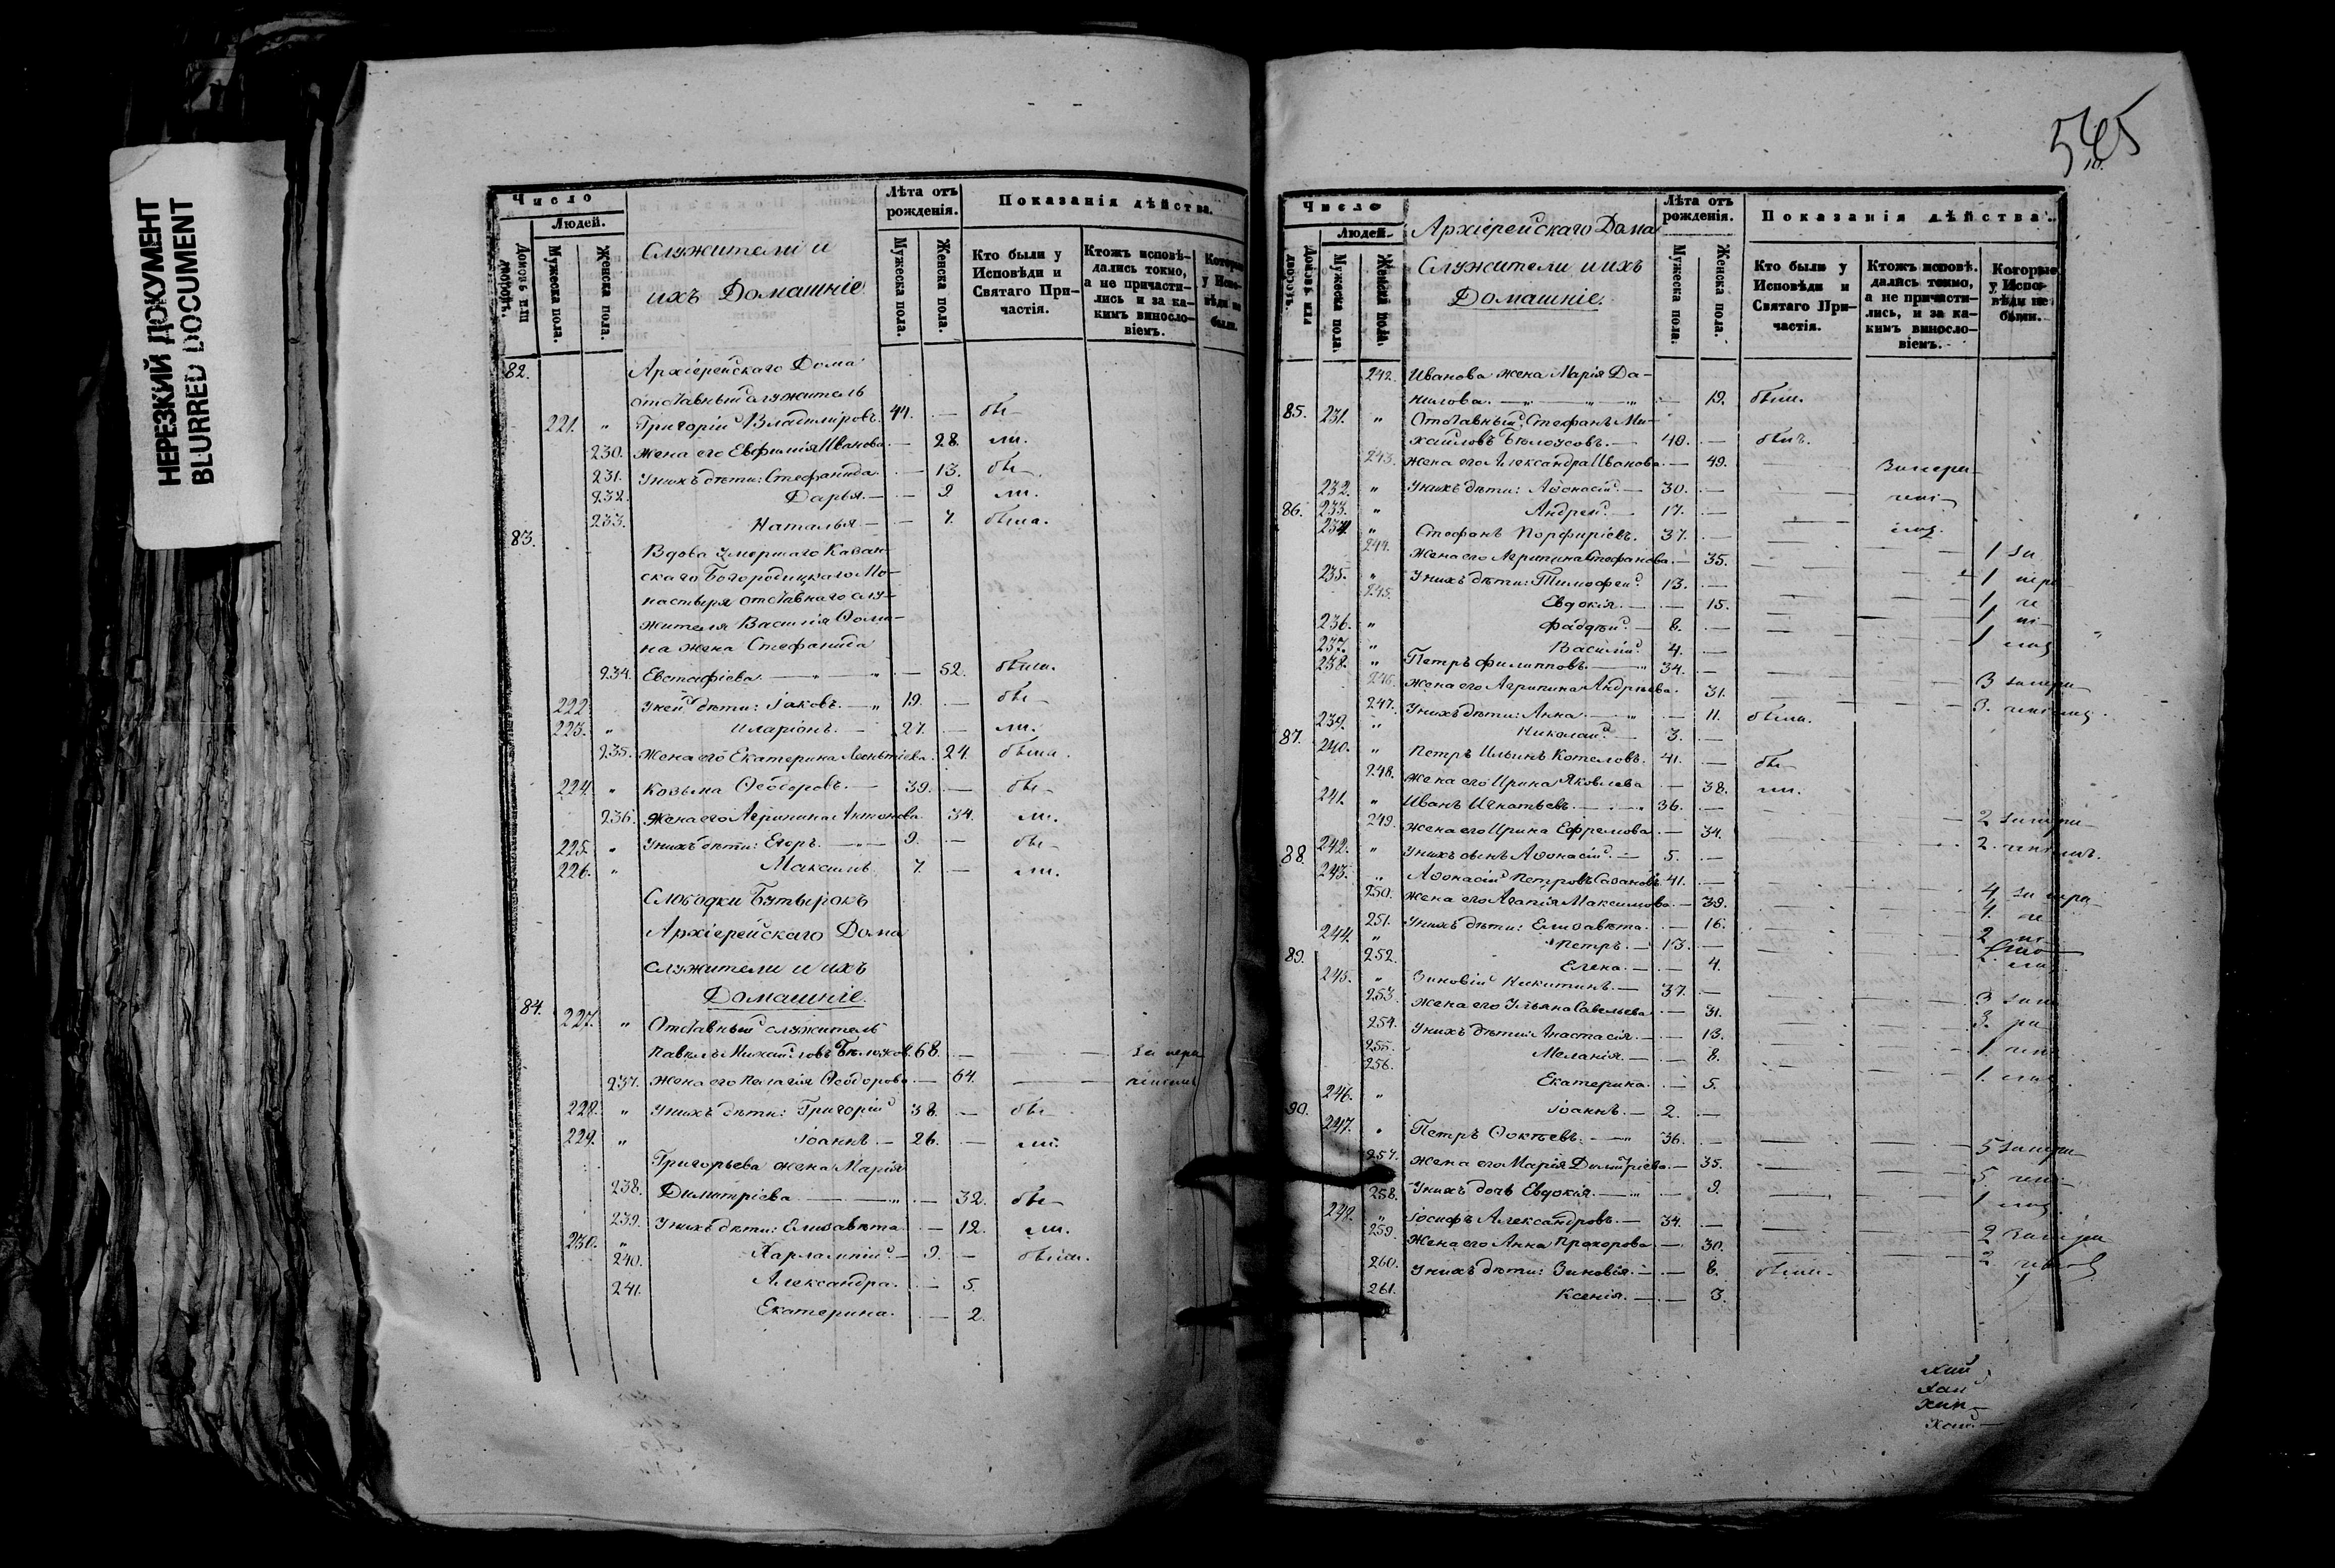 НЕРЕЗКИЙ ДОКУМЕНТ
BLURRED DOCUMENT
Число
Людей.
Домовъ или дворовъ.
Мужеска пола.
Женска пола.
Служители и
ихъ Домашніе
Лѣта отъ рожденія.
Мужеска пола.
Женска пола.
Показанія дѣйства.
Кто были у Исповѣди и Святаго Причастія.
Ктожъ исповѣдались токмо, а не причастились и за какимъ винословіемъ.
Которые у Исповѣди не были.
82. Архіерейскаго Дома
отставный служитель
221. " Григорій Владиміровъ. 44. — бы-
230. Жена его Евфимія Иванова. — 28. ли.
231. У нихъ дѣти: Стефанида. — 13. бы-
232. Дарья. — 9. ли.
233. Наталья. — 7. была.
83. Вдова умершаго Казан-
скаго Богородицкаго Мо-
настыря отставнаго слу-
жителя Василія Ѳоми-
на жена Стефанида
234. Евстафіева. — 52. были.
222. У ней дѣти: Іаковъ. — 19. — бы-
223. " Иларіонъ. — 27. — ли.
235. Жена его Екатерина Леонтіева. 24. была.
224. " Козьма Ѳеодоровъ. — 39. — бы-
236. Жена его Агрипина Антонова. 34. ли.
225. " У нихъ дѣти: Егоръ. — 9. — бы-
226. " Максимъ. 7. — ли.
Слободки Бутырокъ
Архіерейскаго Дома
служители и ихъ
Домашніе.
84. 227. " Отставный служитель
Павелъ Михайловъ 68. — За нера
237. Жена его Пелагія Ѳеодорова. — 64.
228. " У нихъ дѣти: Григорій 38. — бы-
229. " Іоаннъ. — 26. — ли.
Григорьева жена Марія
238. Димитріева. — 32. бы-
239. У нихъ дѣти: Елизавета. — 12. ли.
230. " Харлампій. — 9. — были.
240. Александра. — 5.
241. Екатерина. — 2.
565
Число
Людей.
Домовъ или дворовъ.
Мужеска пола.
Женска пола.
Архіерейскаго Дома
Служители и ихъ
Домашніе.
Лѣта отъ рожденія.
Мужеска пола.
Женска пола.
Показанія дѣйства.
Кто были у Исповѣди и Святаго Причастія.
Ктожъ исповѣдались токмо, а не причастились, и за какимъ винословіемъ.
Которые у Исповѣди не были.
242. Иванова жена Марія Да-
нилова. — 19. были.
85. 231. " Отставный Стефанъ Ми-
хайловъ Бѣлоусовъ. — 40. — былъ.
243. Жена его Александра Иванова. — 49. За нера
232. " У нихъ дѣти: Аѳонасій. — 30. —
86. 233. " Андрей. — 17. —
234. " Стефанъ Порфиріевъ. 37. —
244. Жена его Агрипина Стефанова. — 35. 1 за
235. " У нихъ дѣти: Тимофей. 13. — 1 нера
245. Евдокія. — 15. 1
236. " Фаддѣй. — 8. — 1
237. " Василій. 4. — 1
238. " Петръ Филипповъ. — 34. —
246. Жена его Агрипина Андрѣева. 31. 3 за нера
247. У нихъ дѣти: Анна. — 11. была. 3.
239. " Николай. — 3. —
87. 240. " Петръ Ильинъ Котеловъ. 41. — бы-
248. Жена его Ирина Яковлева — 38. ли.
241. " Иванъ Игнатьевъ. — 36. —
249. Жена его Ирина Ефремова. — 34. 2 за нера
242. " У нихъ сынъ Аѳонасій. — 5. — 2.
88. 243. " Аѳонасій Петровъ Сазановъ 41. —
250. Жена его Агапія Максимова. — 39. 4 за нера
251. У нихъ дѣти: Елизавета. — 16. 4.
244. " Петръ. — 13. — 2
252. Елена. — 4.
89. 245. " Зиновій Никитинъ. — 37. —
253. Жена его Ульяна Савельева. — 31. 3 за не
254. У нихъ дѣти: Анастасія. — 13. 3. ра
255. Меланія. — 8. 1.
256. Екатерина. — 5. 1.
246. " Іоаннъ. — 2. —
90. 247. " Петръ Ѳоктевъ. — 36. —
257. Жена его Марія Димитріева. — 35. 5 за нера
258. У нихъ дочь Евдокія. — 9. 5.
248. " Іосифъ Александровъ. — 34. — 1
259. Жена его Анна Прохорова. — 30. 2 За нера
260. У нихъ дѣти: Зиновія. — 8. были. 2
261. Ксенія. — 3.